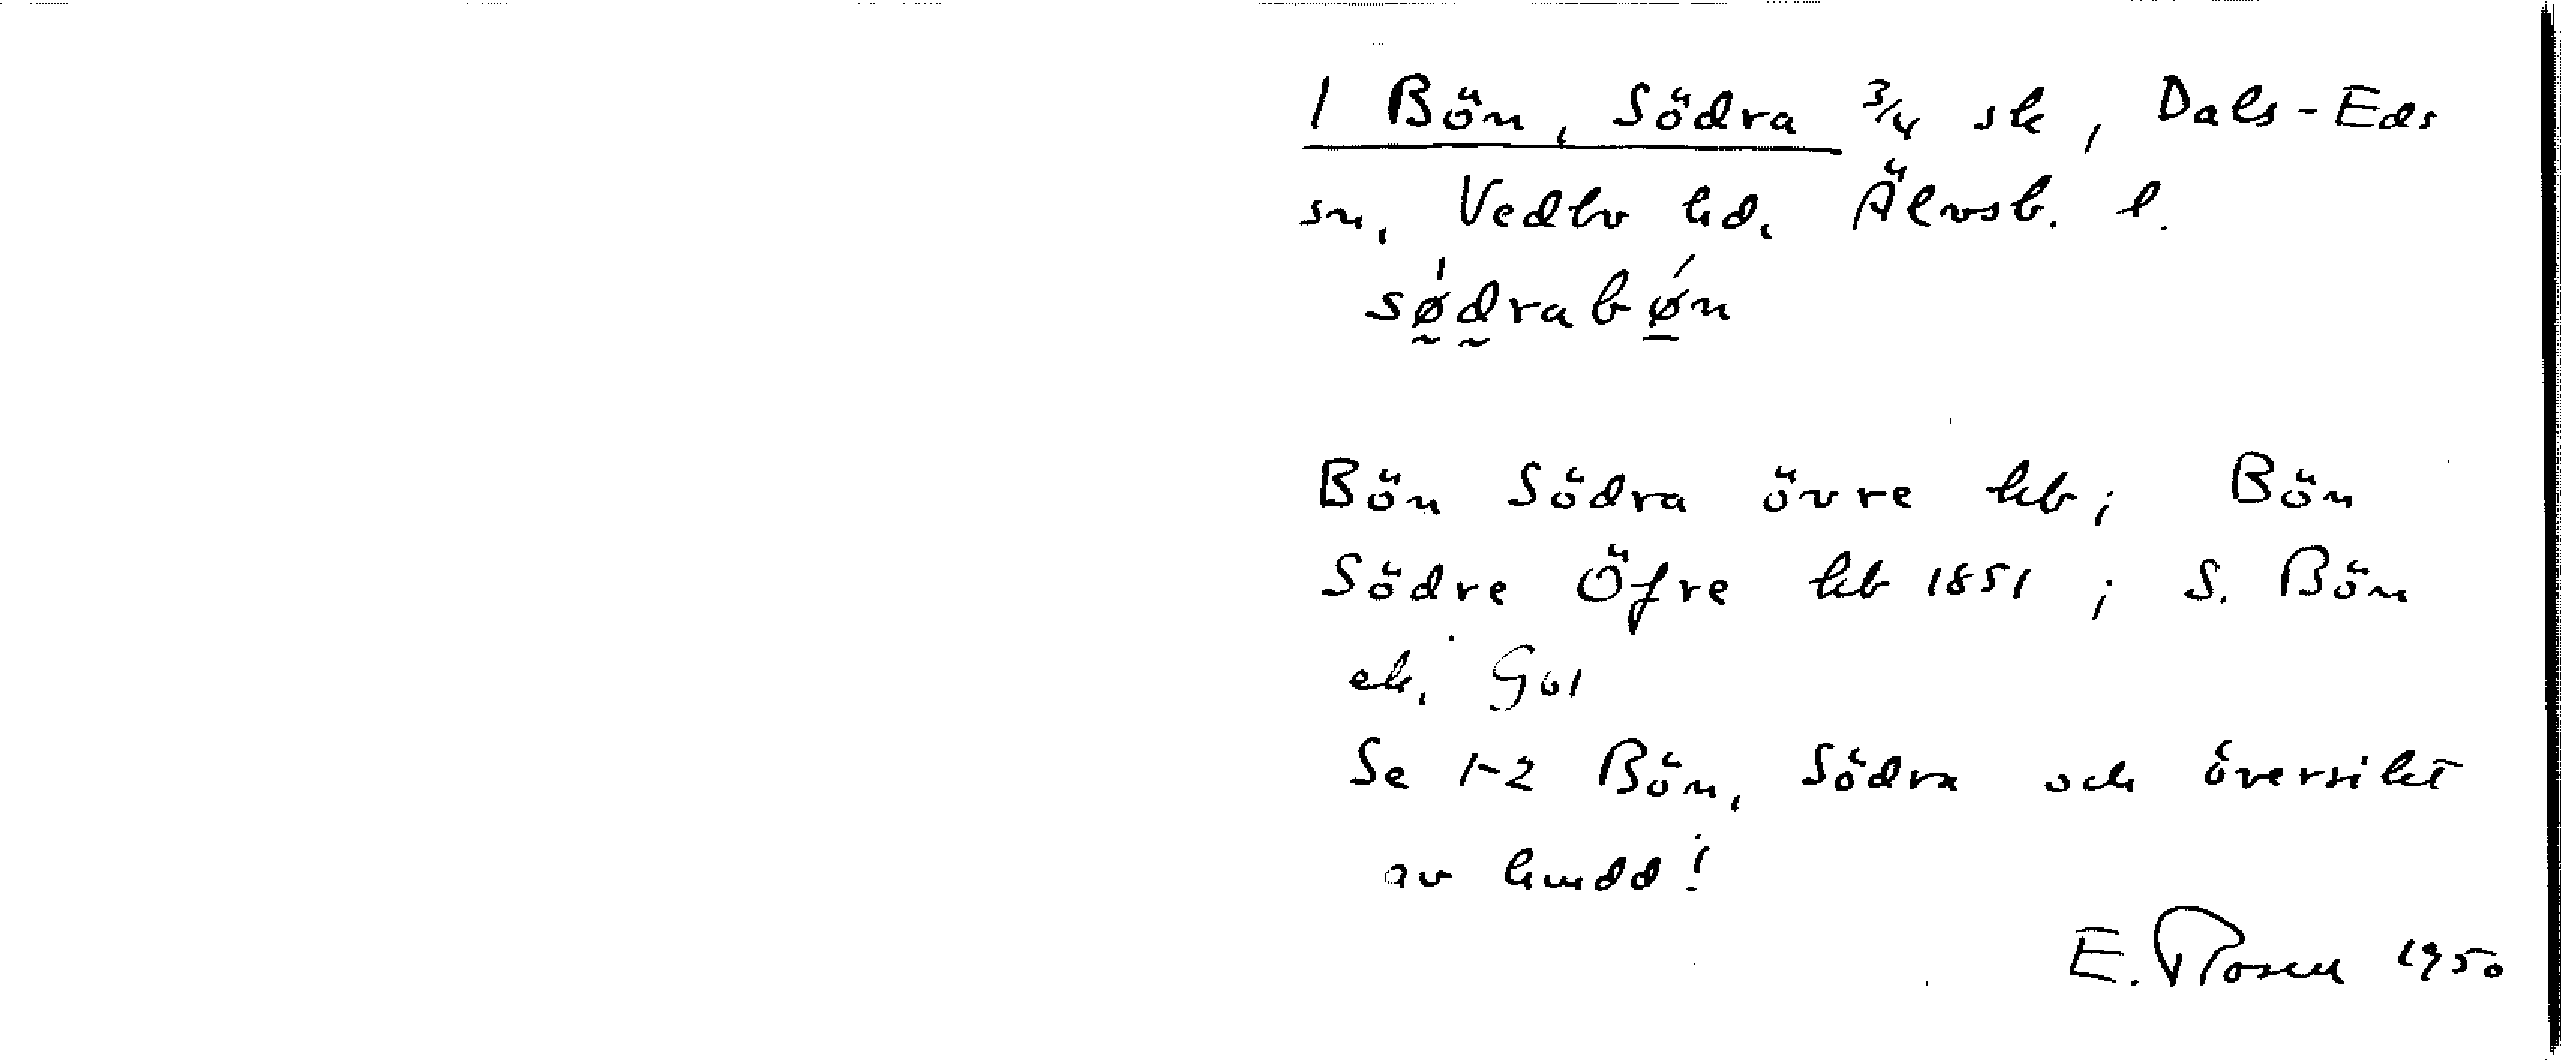 1 Bön, Södra 3/4 sk, Dals-Eds
sn, Vedbo hd, Älvsb. l.
sǿdrabǿn
Bön Södra övre kb; Bön
Södre Öfre kb 1851; S. Bön
ek. G61
Se 1-2 Bön, Södra och översikt
av hmdd!
E. Rosen 1950